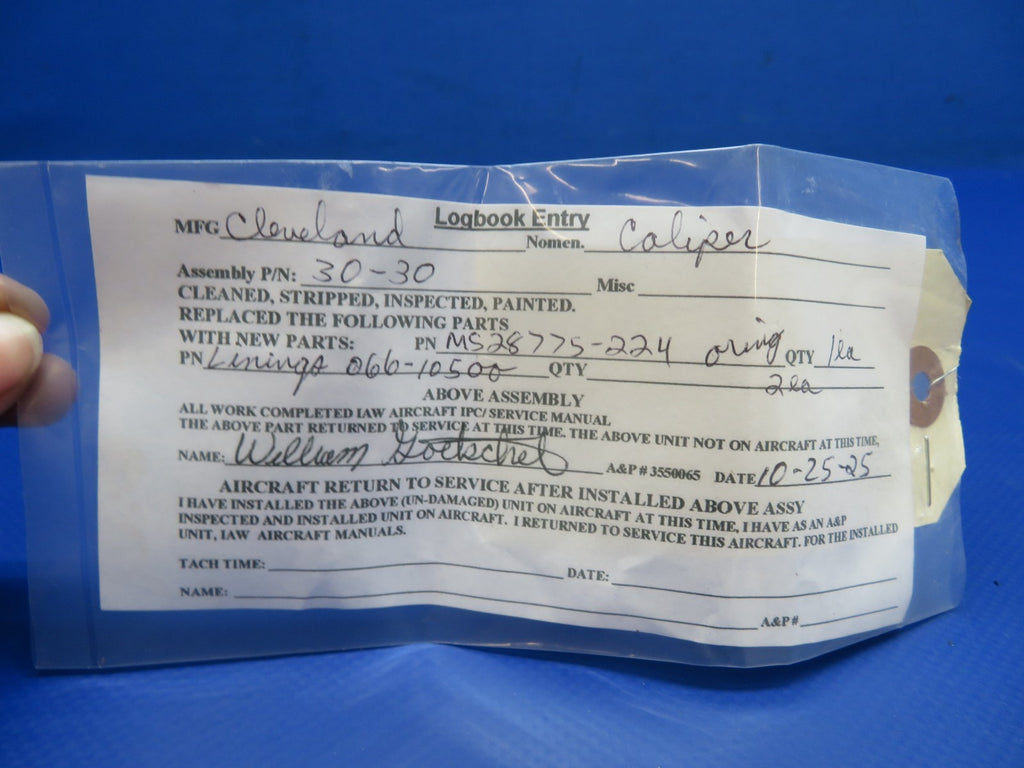 Logbook Entry
MFG Cleveland Nomen. Caliper
Assembly P/N: 30-30 Misc
CLEANED, STRIPPED, INSPECTED, PAINTED.
REPLACED THE FOLLOWING PARTS
WITH NEW PARTS: PN MS28775-224 oring QTY 1ea
PN Linings 066-10500 QTY 2ea
ABOVE ASSEMBLY
ALL WORK COMPLETED IAW AIRCRAFT IPC/ SERVICE MANUAL
THE ABOVE PART RETURNED TO SERVICE AT THIS TIME. THE ABOVE UNIT NOT ON AIRCRAFT AT THIS TIME,
NAME: William Goetschel A&P # 3550065 DATE 10-25-25
AIRCRAFT RETURN TO SERVICE AFTER INSTALLED ABOVE ASSY
I HAVE INSTALLED THE ABOVE (UN-DAMAGED) UNIT ON AIRCRAFT AT THIS TIME, I HAVE AS AN A&P
INSPECTED AND INSTALLED UNIT ON AIRCRAFT. I RETURNED TO SERVICE THIS AIRCRAFT. FOR THE INSTALLED
UNIT, IAW AIRCRAFT MANUALS.
TACH TIME: DATE:
NAME: A&P #